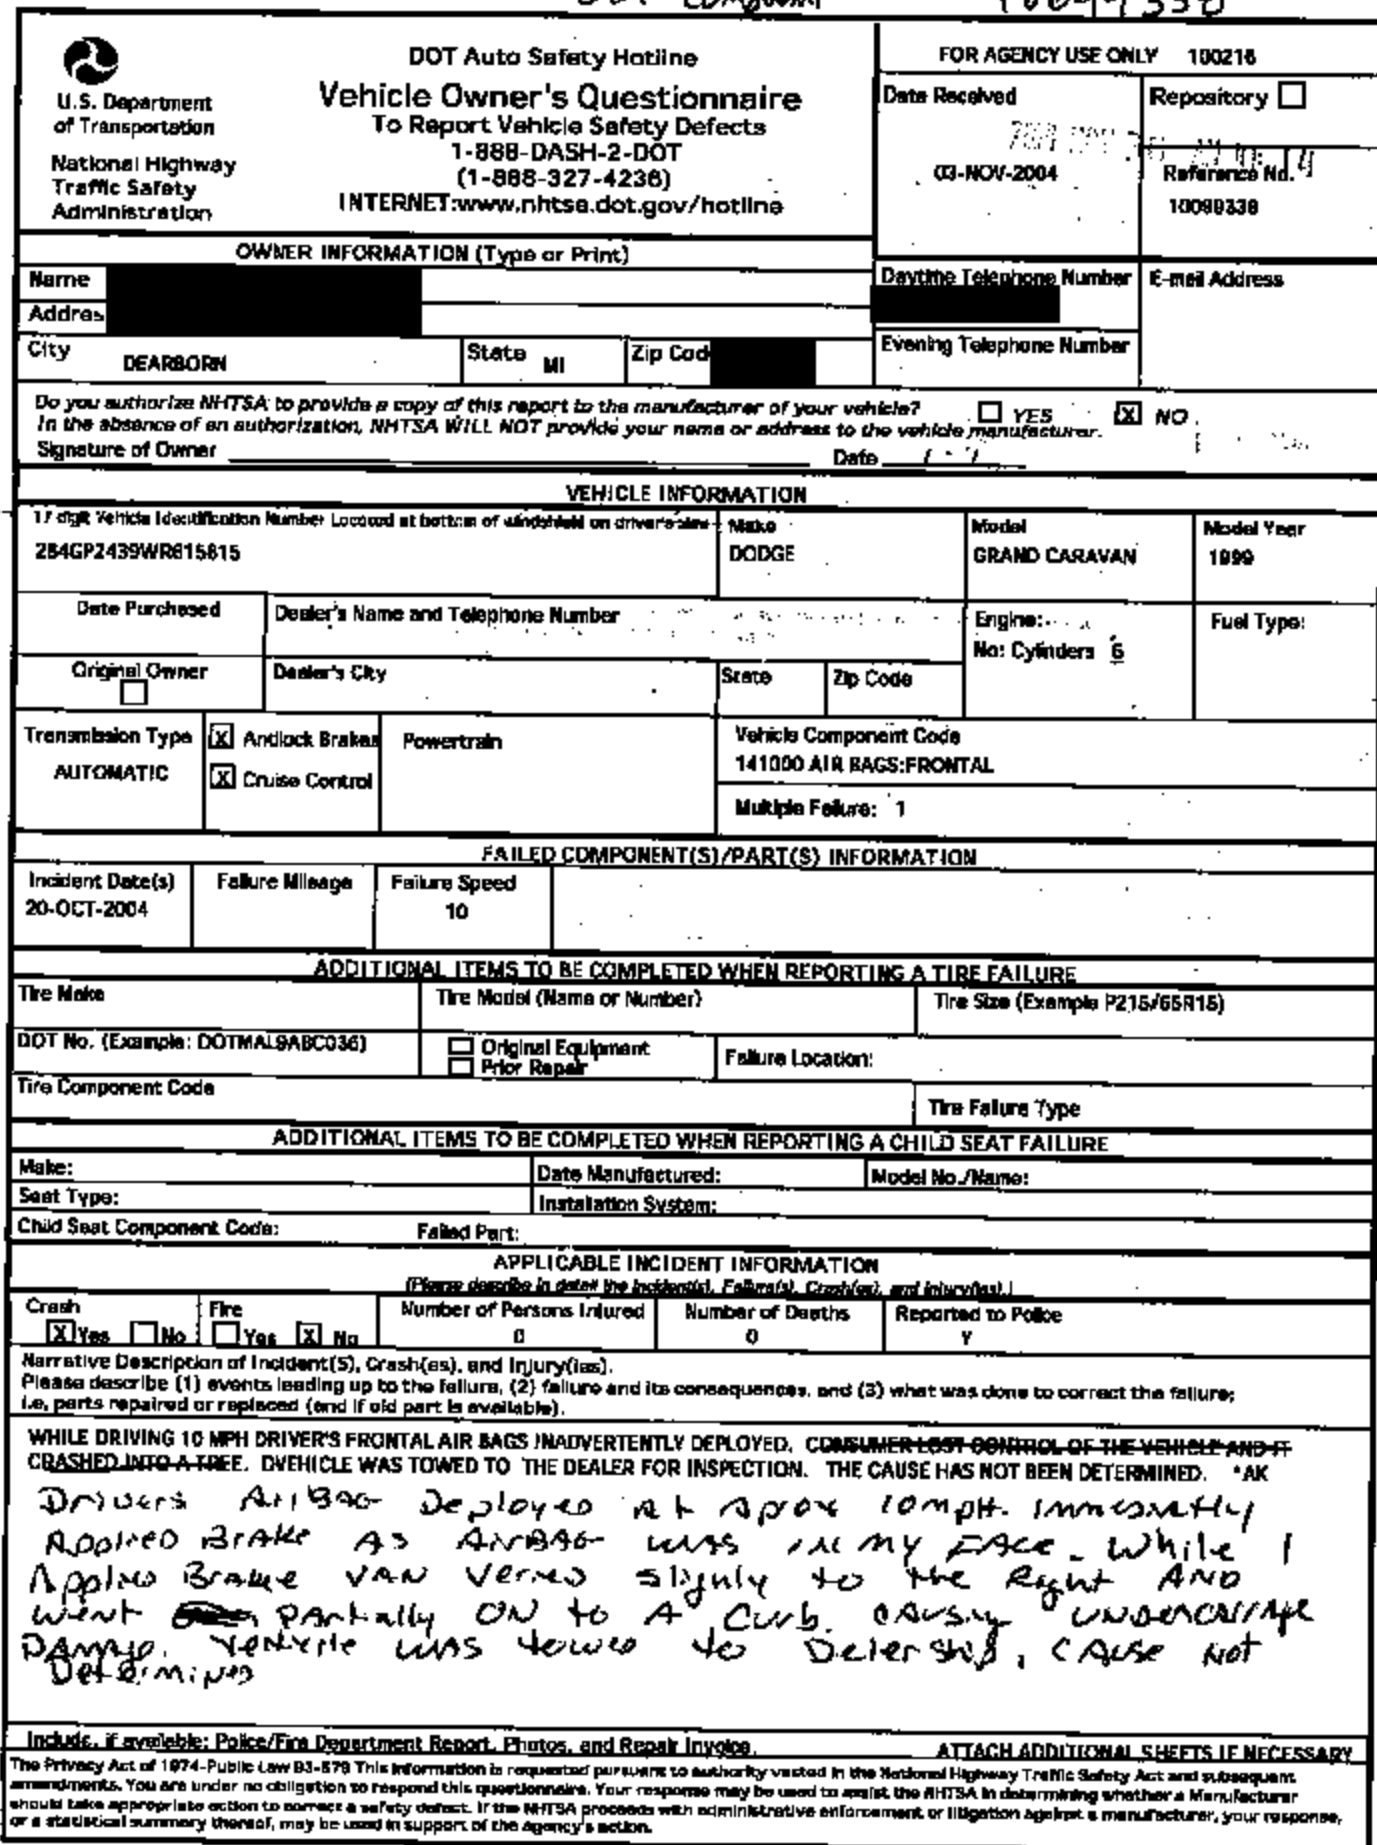 DOT Auto Safety Hotline
Vehicle Owner's Questionnaire
To Report Vehicle Safety Defects
1-888-DASH-2-DOT
(1-888-327-4236)
INTERNET:www.nhtsa.dot.gov/hotline
U.S. Department
of Transportation
National Highway
Traffic Safety
Administration
FOR AGENCY USE ONLY 100216
Date Received
03-NOV-2004
Repository
Reference No.
10099338
OWNER INFORMATION (Type or Print)
Name
Addres
Daytime Telephone Number
E-mail Address
City DEARBORN
State MI
Zip Cod
Evening Telephone Number
Do you authorize NHTSA to provide a copy of this report to the manufacturer of your vehicle? YES X NO
In the absence of an authorization, NHTSA WILL NOT provide your name or address to the vehicle manufacturer.
Signature of Owner Date
VEHICLE INFORMATION
17 digit Vehicle Identification Number Located at bottom of windshield on driver's side
2B4GP2439WR615815
Make
DODGE
Model
GRAND CARAVAN
Model Year
1999
Date Purchased
Dealer's Name and Telephone Number
Engine:
No: Cylinders 6
Fuel Type:
Original Owner
Dealer's City
State
Zip Code
Transmission Type
AUTOMATIC
X Antilock Brakes
X Cruise Control
Powertrain
Vehicle Component Code
141000 AIR BAGS:FRONTAL
Multiple Failure: 1
FAILED COMPONENT(S)/PART(S) INFORMATION
Incident Date(s)
20-OCT-2004
Failure Mileage
Failure Speed
10
ADDITIONAL ITEMS TO BE COMPLETED WHEN REPORTING A TIRE FAILURE
Tire Make
Tire Model (Name or Number)
Tire Size (Example P215/65R15)
DOT No. (Example: DOTMAL9ABC036)
Original Equipment
Prior Repair
Failure Location:
Tire Component Code
Tire Failure Type
ADDITIONAL ITEMS TO BE COMPLETED WHEN REPORTING A CHILD SEAT FAILURE
Make:
Date Manufactured:
Model No./Name:
Seat Type:
Installation System:
Child Seat Component Code:
Failed Part:
APPLICABLE INCIDENT INFORMATION
(Please describe in detail the incident(s), Failure(s), Crash(es), and injury(ies).)
Crash
X Yes No
Fire
Yes X No
Number of Persons Injured
0
Number of Deaths
0
Reported to Police
Y
Narrative Description of Incident(S), Crash(es), and Injury(ies).
Please describe (1) events leading up to the failure, (2) failure and its consequences, and (3) what was done to correct the failure;
i.e, parts repaired or replaced (and if old part is available).
WHILE DRIVING 10 MPH DRIVER'S FRONTAL AIR BAGS INADVERTENTLY DEPLOYED. CONSUMER LOST CONTROL OF THE VEHICLE AND IT
CRASHED INTO A TREE. DVEHICLE WAS TOWED TO THE DEALER FOR INSPECTION. THE CAUSE HAS NOT BEEN DETERMINED. *AK
Drivers AirBag Deployed at Aprox 10mph.
Applied Brake As AirBAG was in my FACE. While I
Applied Brake VAN to the Right AND
went partially ON to A Curb causing
was towed to CAUSE Not
Include, if available: Police/Fire Department Report, Photos, and Repair Invoice.
ATTACH ADDITIONAL SHEETS IF NECESSARY
The Privacy Act of 1974-Public Law 93-579 This information is requested pursuant to authority vested in the National Highway Traffic Safety Act and subsequent
amendments. You are under no obligation to respond this questionnaire. Your response may be used to assist the NHTSA in determining whether a Manufacturer
should take appropriate action to correct a safety defect. If the NHTSA proceeds with administrative enforcement or litigation against a manufacturer, your response,
or a statistical summary thereof, may be used in support of the Agency's action.